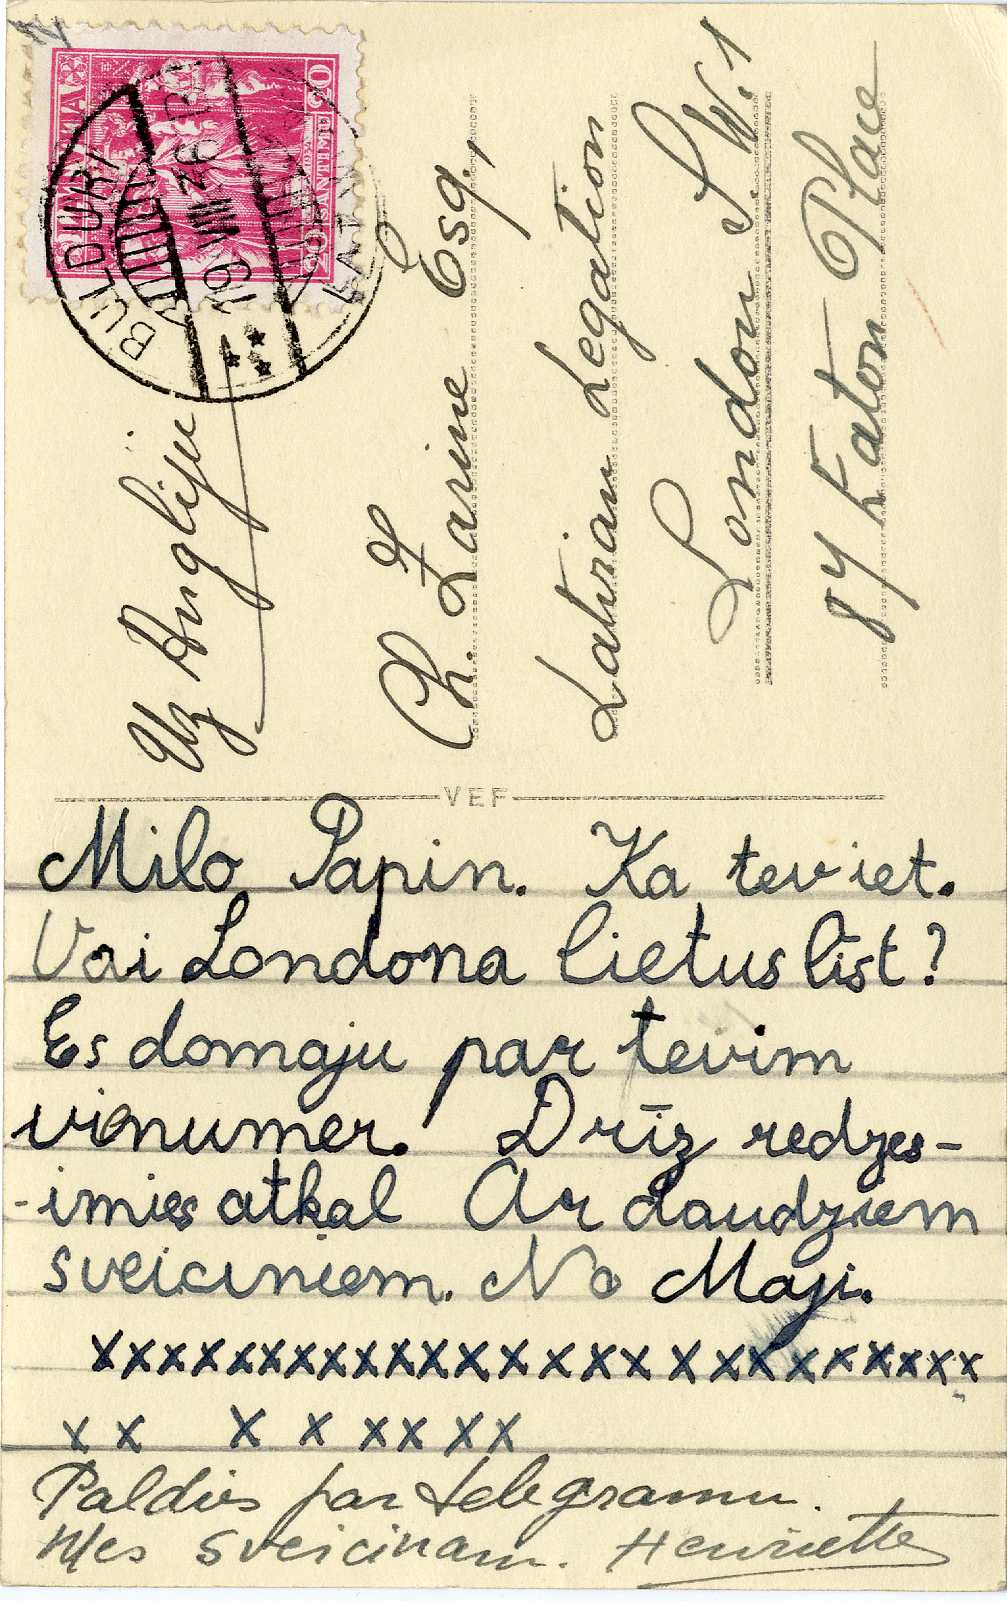 LATVIJA
20 SANTIMU 20
BULDURI
19 VIII 36
LATV
Uz Angliju
Ch. Zarine Esq.,
Latvian Legation
London S.W.1
87 Eaton Place
VEF
Milo Papin. Ka tev iet.
Vai Londona lietus līst?
Es domaju par tevim
vienumer. Drīz redzes-
-imies atkal Ar daudziem
sveiciniem. No Maji.
xxxxxxxxxxxxxxxxxxxxxxxxx
x x x x xx xx
Paldies par telegramu.
Mes sveicinam. Henriette